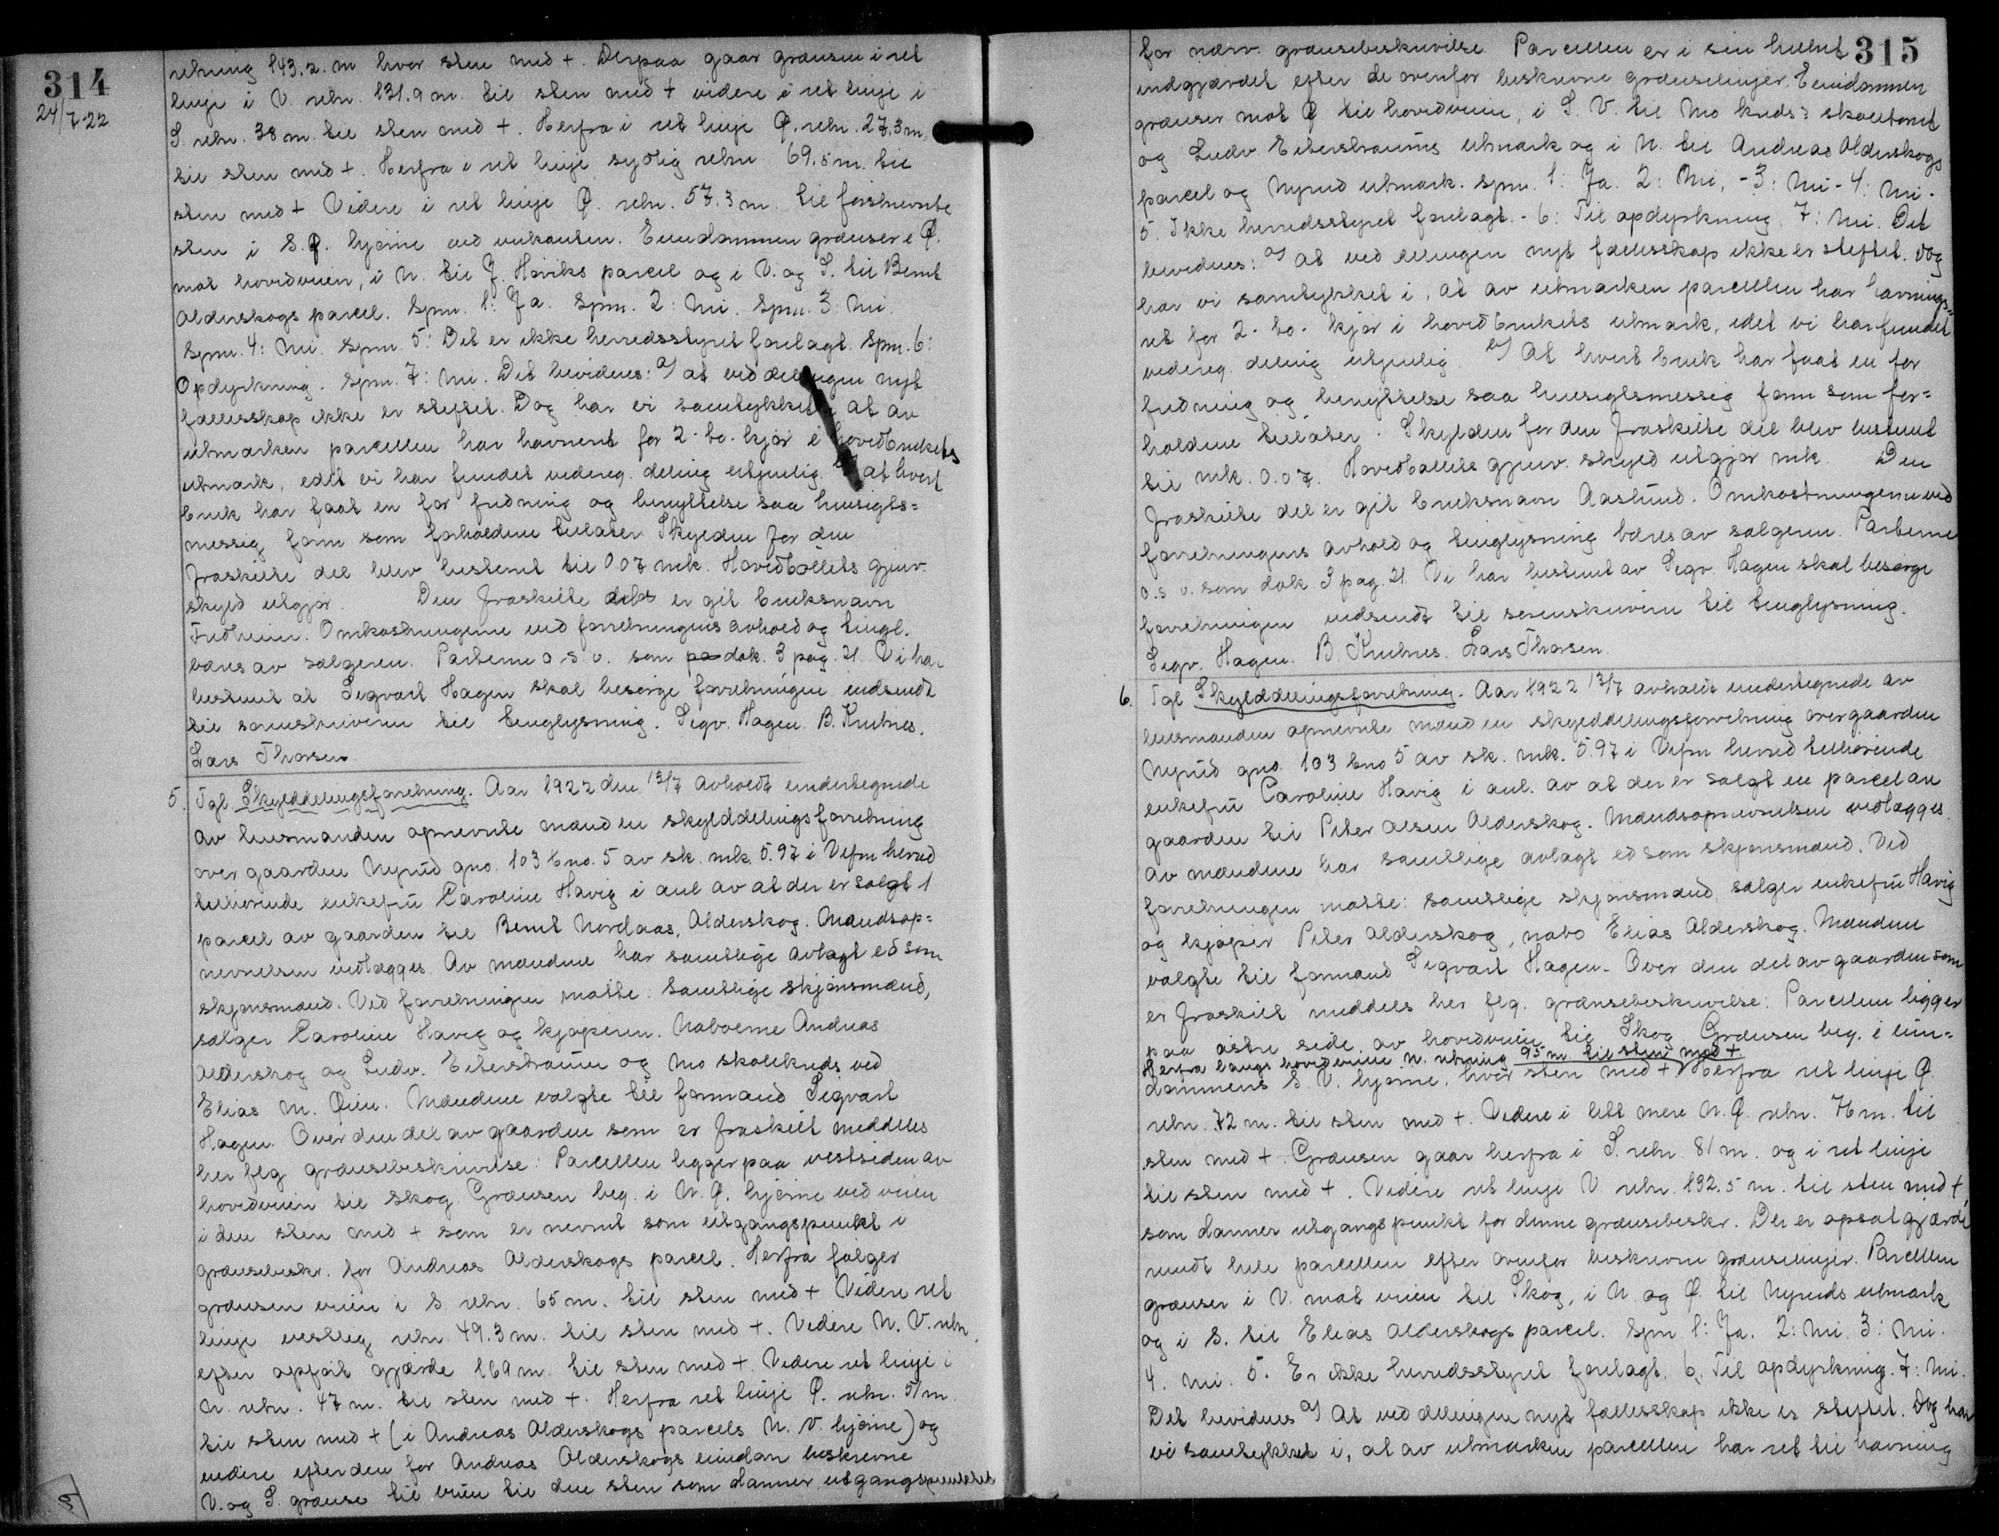 314
24/7-22
retning 143.2. m hvor sten med +. Derpaa gaar grænsen i ret
linje i V. retn. 131.9 m. til sten med + videre i ret linje i
S. retn. 38 m. til sten med +. Herfra i ret linje Ø. retn. 27.3 m.
til sten med +. Herfra i ret linje sydlig retn 69.5 m. til
sten med + Videre i ret linje Ø. retn. 57.3 m. til førstnevnte
sten i S.Ø. hjørne ved veikanten. Eiendommen grænser i Ø.
mot hovedveien, i N. til J. Haviks parcel og i V. og S. til Bernt
Alderskogs parcel. Spm. 1: Ja. Spm. 2: Nei. Spm. 3: Nei.
Spm. 4: Nei. Spm. 5: Det er ikke herredsstyret forelagt. Spm. 6:
Opdyrkning. Spm. 7: Nei. Det bevidnes: a/ at ved delingen nyt
fællesskap ikke er stiftet. Dog har vi samtykket i at av
utmarken parcellen har havneret for 2-to-kjør i hovedbrukets
utmark, idet vi har fundet vedereg. deling utjenlig. b/ at hvert
bruk har faat en for fredning og benyttelse saa hensigts=
messig form som forholdene tillater. Skylden for den
fraskilte del blev bestemt til 0.07 mk. Hovedbøllets gjenv.
skyld utgjør. Den fraskilte del er git bruksnavn
Fredheim. Omkostningerne ved forretningens avhold og tingl.
bæres av sælgeren. Parterne o.s.v. som pa dok. 3 pag. 21. Vi har
bestemt at Sigvart Hagen skal besørge forretningen indsendt
til sorenskriveren til tinglysning. Sigv. Hagen. B. Knutnes.
Lars Thorsen
5. Tgl. Skylddelingsforretning. Aar 1922 den 13/7 avholdt undertegnede
av lensmanden opnevnte mænd en skylddelingsforretning
over gaarden Nyrud gno. 103 bno. 5 av sk. mk. 5.97 i Vefsn herred
tilhørende enkefru Caroline Havig i anl. av at der er solgt 1
parcel av gaarden til Bernt Nordaas, Alderskog. Mændsop=
nevnelsen vedlægges. Av mændene har samtlige avlagt ed som
skjønsmænd. Ved forretningen møtte: Samtlige skjønsmænd,
sælger Caroline Havig og kjøperen. Naboerne Andreas
Alderskog og Ludv. Eiterstraum og Mo skolekreds ved
Elias M. Øien. Mændene valgte til formand Sigvart
Hagen. Over den del av gaarden som er fraskilt meddeles
her flg. grænsebeskrivelse: Parcellen ligger paa vestsiden av
hovedveien til Skog. Grænsen beg. i N.Ø. hjørne ved veien
i den sten med + som er nevnt som utgangspunkt i
grænsebeskr. for Andreas Alderskogs parcel. Herfra følger
grænsen veien i S. retn. 65 m. til sten med + Videre ret
linje vestlig retn. 49.3 m. til sten med +. Videre N.V. retn.
efter opført gjærde 169 m. til sten med +. Videre ret linje i
N. retn. 47 m. til sten med +. Herfra ret linje Ø. retn. 51 m.
til sten med + (i Andreas Alderskogs parcels N.V. hjørne) og
videre efter den for Andreas Alderskogs eiendom beskrevne
V. og S. grænse til veien til den sten som danner utgangspunktet
315
for nærv. grænsebeskrivelse. Parcellen er i sin helhet
indgjærdet efter de ovenfor beskrevne grænselinjer. Eiendommen
grænser mot Ø til hovedveien, i S.V. til Mo kreds's skoletomt
og Ludv. Eiterstraums utmark og i N. til Andreas Alderskogs
parcel og Nyrud utmark. Spm. 1: Ja. 2: Nei, - 3: Nei - 4: Nei.
5. Ikke herredsstyret forelagt. - 6: Til opdyrkning. 7: Nei. Det
bevidnes: a/ at ved delingen nyt fællesskap ikke er stiftet. Dog
har vi samtykket i, at av utmarken parcellen har havnings=
ret for 2-to-kjør i hovedbrukets utmark, idet vi har fundet
vedereg. deling utjenlig. b/ At hvert bruk har faat en for
fredning og benyttelse saa hensigtsmessig form som for=
holdene tillater. Skylden for den fraskilte del blev bestemt
til mk. 0.07. Hovedbøllets gjenv. skyld utgjør mk. Den
fraskilte del er git bruksnavn Aaslund. Omkostningerne ved
forretningens avhold og tinglysning bæres av sælgeren. Parterne
o.s.v. som dok 3 pag. 21. Vi har bestemt av Sigv. Hagen skal besørge
forretningen indsendt til sorenskriveren til tinglysning.
Sigv. Hagen. B. Knutnes. Lars Thorsen.
6. Tgl Skylddelingsforretning. Aar 1922 13/7 avholdt undertegnede av
lensmanden opnevnte mænd en skylddelingsforretning over gaarden
Nyrud gno. 103 bno 5 av sk. mk. 5.97 i Vefsn herred tilhørende
enkefru Caroline Havig i anl. av at der er solgt en parcel av
gaarden til Peter Olsen Alderskog. Mændsopnevnelsen vedlægges.
Av mændene har samtlige avlagt ed som skjønsmænd. Ved
forretningen møtte: Samtlige skjønsmænd, sælger enkefru Havig
og kjøper Peter Alderskog, nabo Elias Alderskog. Mændene
valgte til formand Sigvart Hagen. Over den del av gaarden som
er fraskilt meddeles her flg. grænsebeskrivelse: Parcellen ligger
paa østre side av hovedveien til Skog Grænsen beg. i eien=
Herfra langs hovedveien N. retning 95 m til sten med +
dommens S.V. hjørne, hvor sten med + Herfra ret linje Ø.
retn. 72 m. til sten med +. Videre i litt mere N.Ø. retn. 76 m. til
sten med +. Grænsen gaar herfra i S. retn. 81 m. og i ret linje
til sten med +. Videre ret linje V. retn. 132.5 m. til sten med +,
som danner utgangspunkt for denne grænsebeskr. Der er opsat gjærde
rundt hele parcellen efter ovenfor beskrevne grænselinjer. Parcellen
grænser i V. mot veien til Skog, i N. og Ø. til Nyruds utmark
og i S. til Elias Alderskogs parcel. Spm 1: Ja. 2: Nei. 3: Nei.
4. Nei. 5. Er ikke herredsstyret forelagt. 6. Til opdyrkning. 7: Nei.
Det bevidnes a/ At ved delingen nyt fællesskap ikke er stiftet. Dog har
vi samtykket i, at av utmarken parcellen har ret til havning